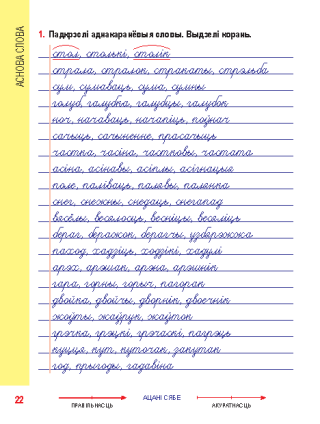 АСНОВА СЛОВА
1. Падкрэслі аднакаранёвыя словы. Выдзелі корань.
стол, столькі, столік
страла, стралок, стракаты, стрэльба
сум, сумаваць, сума, сумны
голуб, галубка, галубцы, галубок
ноч, начаваць, начаніць, поўнач
сачыць, сачыненне, прасачыць
частка, часіна, частковы, частата
асіна, асінавы, асіплы, асігнацыя
поле, паліваць, палявы, паленка
снег, снежны, снедаць, снегапад
вясёлы, весялосць, весніцы, весяліць
бераг, беражок, берагчы, узбярэжжа
паход, хадзіць, ходзікі, хадулі
арэх, арэшак, арэна, арэшнік
гара, горны, горыч, пагорак
двойка, двойчы, дворнік, двоечнік
жоўты, жаўрук, жаўток
грэчка, грэцкі, грэчаскі, пагрэць
куцця, кут, куточак, закутак
год, прыгоды, гадавіна
22
ПРАВІЛЬНАСЦЬ
АЦАНІ СЯБЕ
АКУРАТНАСЦЬ